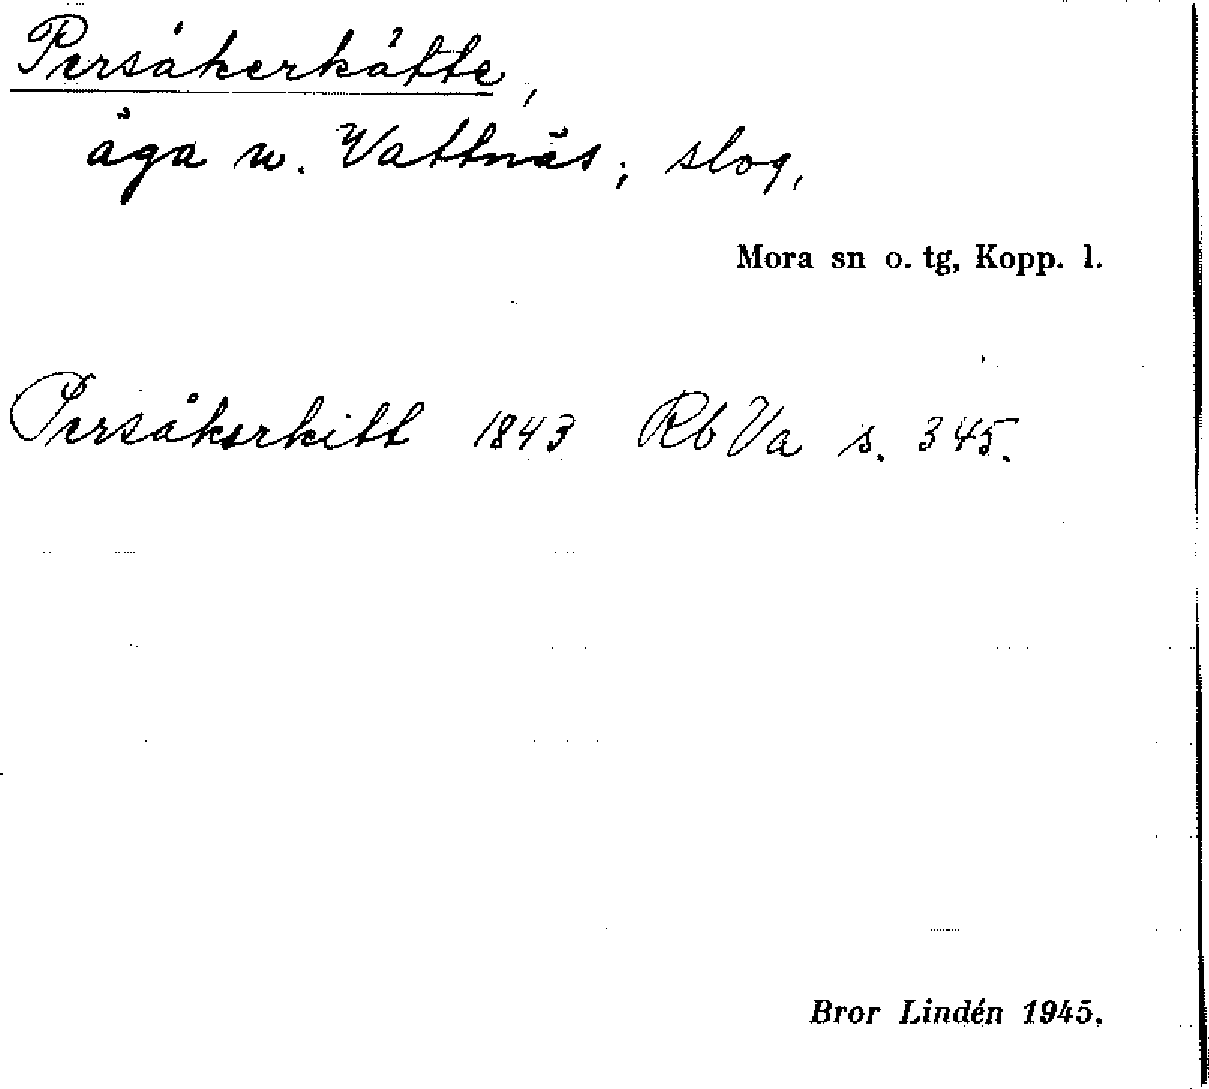 Persåkerkätte,
äga u. Vattnäs; slog,
Mora sn o. tg, Kopp. l.
Persåkerkitt 1843 Rb Va s. 345.
Bror Lindén 1945.